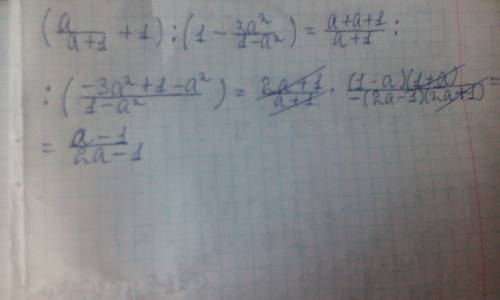 (a/(a+1) + 1) : (1 - 3a²/(1-a²)) = (a+a+1)/(a+1) :
: ((-3a²+1-a²)/(1-a²)) = (2a+1)/(a+1) · ((1-a)(1+a))/(-(2a-1)(2a+1)) =
= (a-1)/(2a-1)